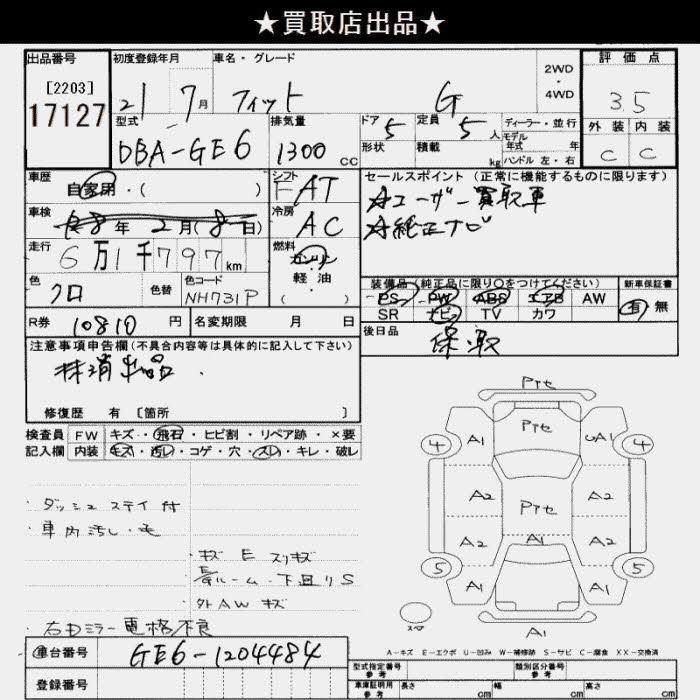 ★買取店出品★
出品番号
[2203]
17127
初度登録年月 車名・グレード
21 7月 フィット G
2WD・4WD
評価点
3.5
外装 内装
C C
型式 排気量 ドア 定員 ディーラー・並行
DBA-GE6 1300cc 5 5人
モデル年式 年
形状 積載 kg ハンドル 左・右
車歴 自家用・( )
シフト FAT
セールスポイント(正常に機能するものに限ります)
☆ユーザー買取車
☆純正ナビ
車検 年2月(8日)
冷房 AC
走行 6万1千797km
燃料 ガソリン・軽油・( )
色 クロ 色替 色コード NH731P
装備品(純正品に限り○をつけてください) 新車保証書
PS PW ABS エアB AW
SR ナビ TV カワ
有 無
R券 10810円 名変期限 月 日
後日品 保・取
注意事項申告欄(不具合内容等は具体的に記入して下さい)
抹消出品.
修復歴 有 [箇所 ]
検査員 FW キズ・飛石・ヒビ割・リペア跡・×要
記入欄 内装 キズ・汚れ・コゲ・穴・スレ・キレ・破レ
・ダッシュ ステイ付
・車内汚し・モ
・キズ E スリキズ
・ルーム・下回りS
・外AWキズ
・右ドミラー電格不良
Pテセ
Pテセ
4 A1 UA1 4
A2 Pテセ A2
A2 A1 A2
5 A1 A1 5
スペア
A1
A-キズ E-エクボ U-凹み W-補修跡 S-サビ C-腐食 XX-交換済
車台番号 GE6-1204484
登録番号
型式指定番号 参考 類別区分番号 参考
車庫証明用 参考 長さ cm 幅 cm 高さ cm